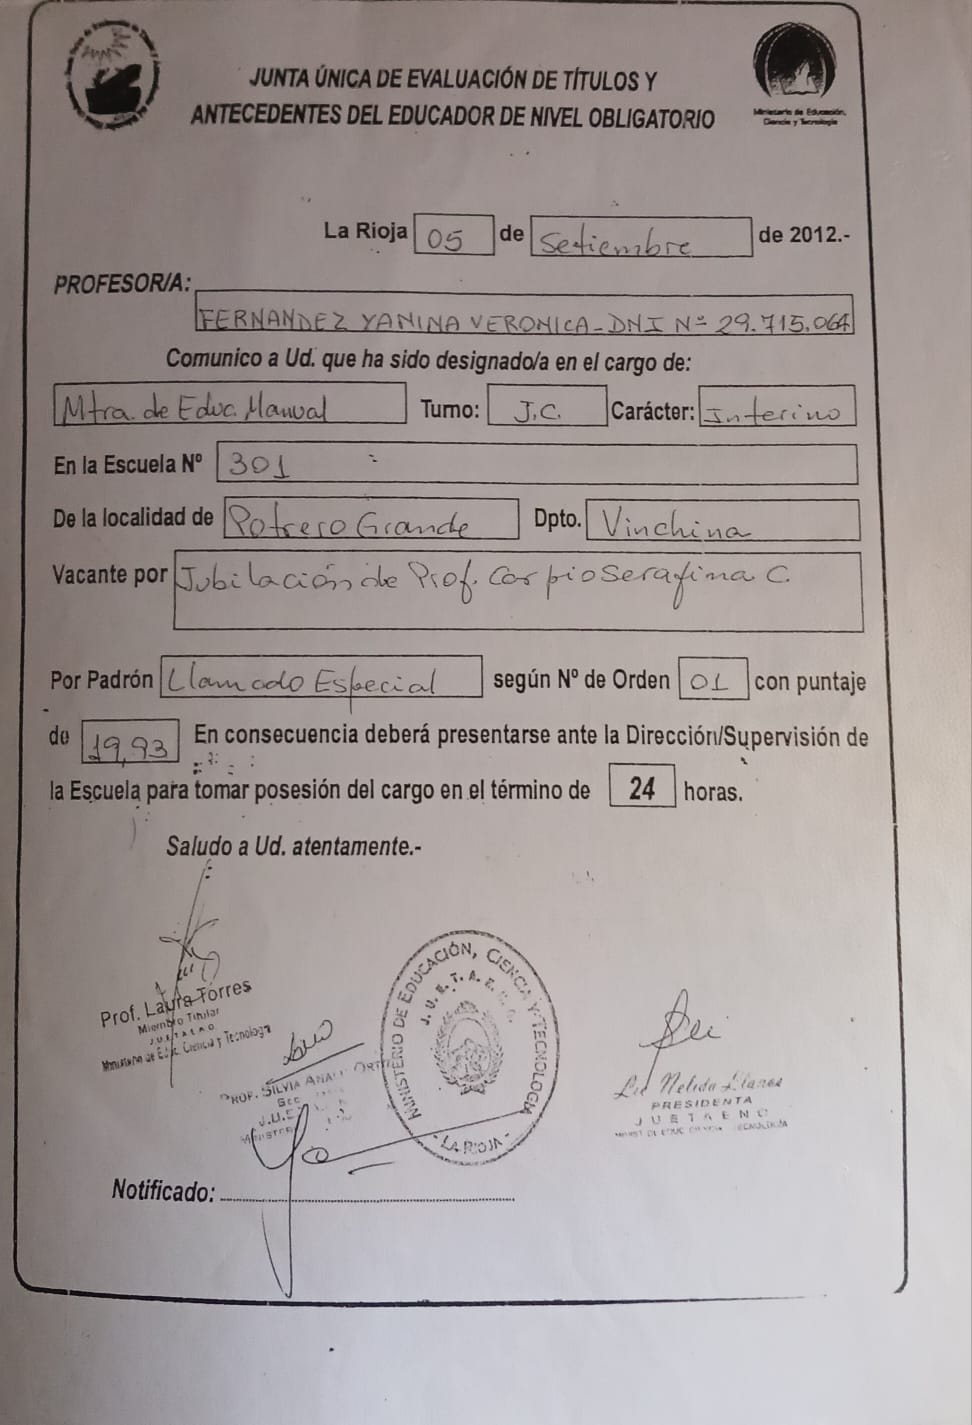 JUNTA ÚNICA DE EVALUACIÓN DE TÍTULOS Y
ANTECEDENTES DEL EDUCADOR DE NIVEL OBLIGATORIO
Ministerio de Educación,
Ciencia y Tecnología
La Rioja 05 de Setiembre de 2012.-
PROFESOR/A:
FERNANDEZ YANINA VERONICA - DNI Nº 29.715.064
Comunico a Ud. que ha sido designado/a en el cargo de:
Mtra. de Educ. Manual Turno: J.C. Carácter: Interino
En la Escuela Nº 301
De la localidad de Potrero Grande Dpto. Vinchina
Vacante por Jubilación de Prof. Carpio Serafina C.
Por Padrón Llamado Especial según Nº de Orden 01 con puntaje
de 19,93 En consecuencia deberá presentarse ante la Dirección/Supervisión de
la Escuela para tomar posesión del cargo en el término de 24 horas.
Saludo a Ud. atentamente.-
Prof. Laura Torres
Miembro Titular
J.U.E.T.A.E.N.O
Ministerio de Educ. Ciencia y Tecnología
PROF. SILVIA
J.U.E.
MINISTERIO DE EDUCACIÓN, CIENCIA Y TECNOLOGÍA
J. U. E. T. A. E.
- LA RIOJA -
Lic Nelida Llanos
PRESIDENTA
J U E T A E N O
Notificado: